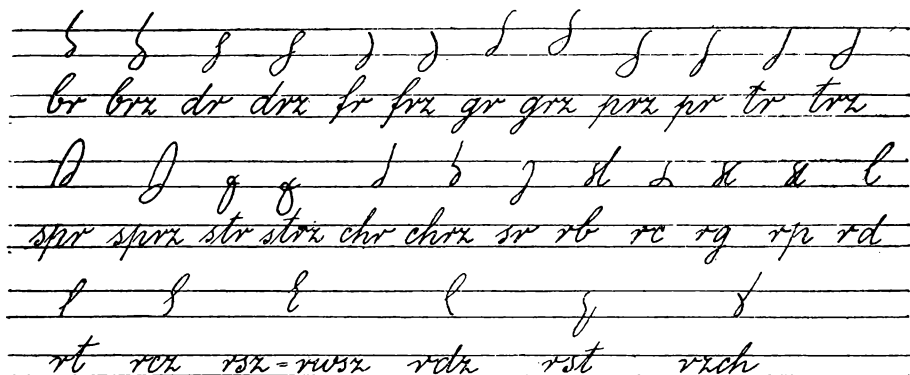 br brz dr drz fr frz gr grz prz pr tr trz
spr sprz str strz chr chrz sr rb rc rg rp rd
rt rcz rsz=rwsz rdz rst rzch